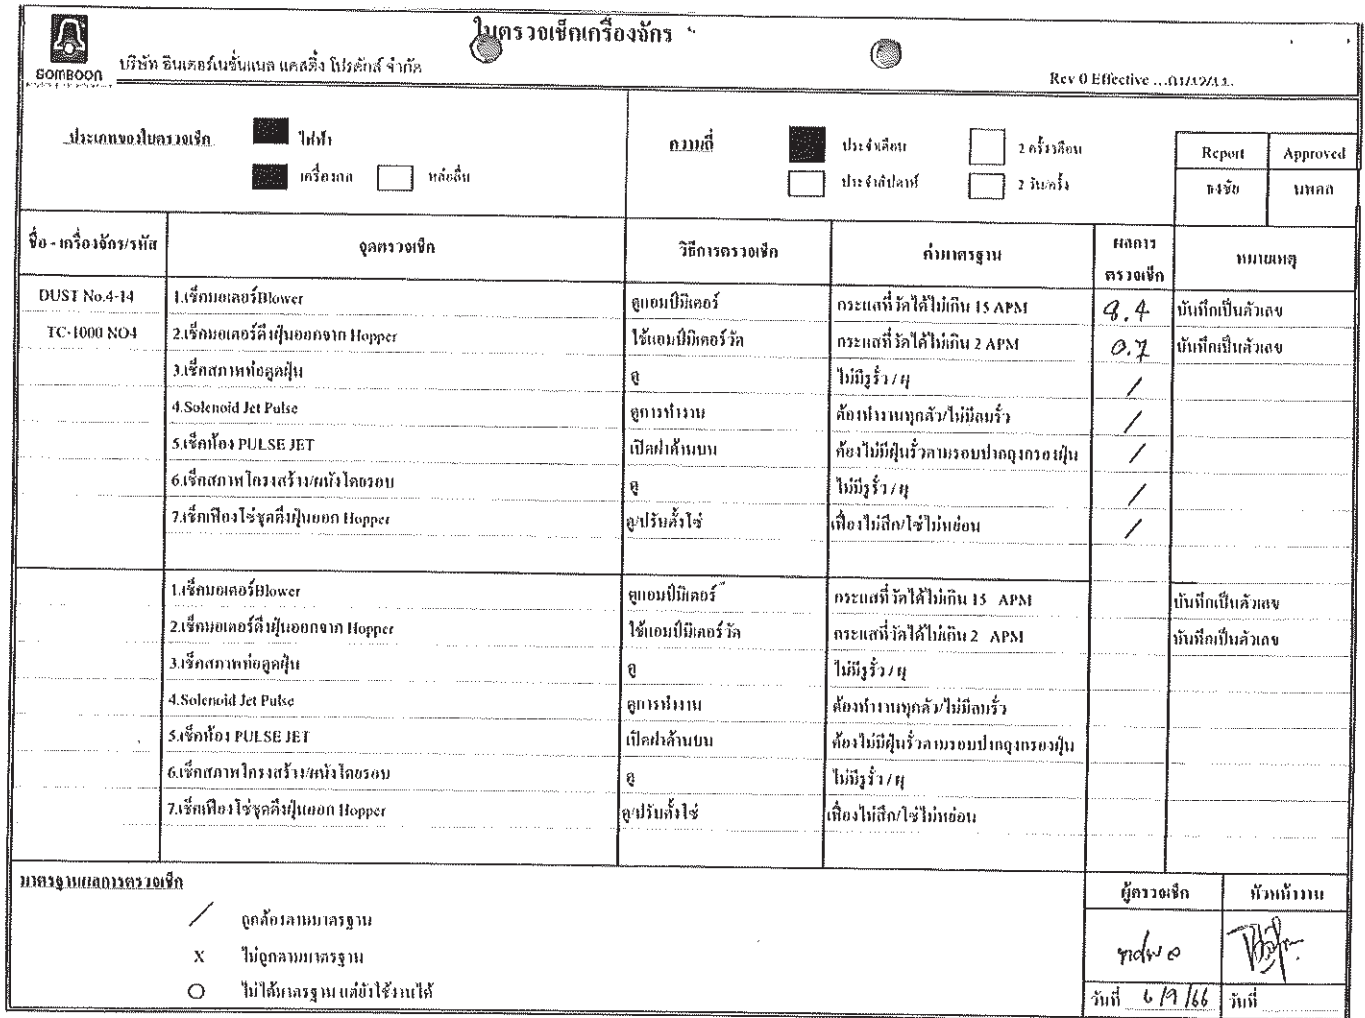 ใบตรวจเช็กเครื่องจักร
SOMBOON
บริษัท อินเตอร์เนชั่นแนล แคสติ้ง โปรดักส์ จำกัด
Rev 0 Effective ...01/12/11.
ประเภทของใบตรวจเช็ก
ไฟฟ้า
เครื่องกล
หล่อลื่น
ความถี่
ประจำเดือน
2 ครั้ง/เดือน
ประจำสัปดาห์
2 วัน/ครั้ง
Report Approved
ธงชัย นพดล
ชื่อ - เครื่องจักร/รหัส จุดตรวจเช็ก วิธีการตรวจเช็ก ค่ามาตรฐาน ผลการตรวจเช็ก หมายเหตุ
DUST No.4-14 1.เช็กมอเตอร์Blower ดูแอมป์มิเตอร์ กระแสที่วัดได้ไม่เกิน 15 APM 8.4 บันทึกเป็นตัวเลข
TC-1000 NO4 2.เช็กมอเตอร์ดึงฝุ่นออกจาก Hopper ใช้แอมป์มิเตอร์วัด กระแสที่วัดได้ไม่เกิน 2 APM 0.7 บันทึกเป็นตัวเลข
3.เช็กสภาพท่อดูดฝุ่น ดู ไม่มีรูรั่ว / ผุ /
4.Solenoid Jet Pulse ดูการทำงาน ต้องทำงานทุกตัว/ไม่มีลมรั่ว /
5.เช็กห้อง PULSE JET เปิดฝาด้านบน ต้องไม่มีฝุ่นรั่วตามรอบปากถุงกรองฝุ่น /
6.เช็กสภาพโครงสร้าง/ผนังโดยรอบ ดู ไม่มีรูรั่ว / ผุ /
7.เช็กเฟืองโซ่ชุดดึงฝุ่นออก Hopper ดู/ปรับตั้งโซ่ เฟืองไม่สึก/โซ่ไม่หย่อน /
1.เช็กมอเตอร์Blower ดูแอมป์มิเตอร์ กระแสที่วัดได้ไม่เกิน 15 APM บันทึกเป็นตัวเลข
2.เช็กมอเตอร์ดึงฝุ่นออกจาก Hopper ใช้แอมป์มิเตอร์วัด กระแสที่วัดได้ไม่เกิน 2 APM บันทึกเป็นตัวเลข
3.เช็กสภาพท่อดูดฝุ่น ดู ไม่มีรูรั่ว / ผุ
4.Solenoid Jet Pulse ดูการทำงาน ต้องทำงานทุกตัว/ไม่มีลมรั่ว
5.เช็กห้อง PULSE JET เปิดฝาด้านบน ต้องไม่มีฝุ่นรั่วตามรอบปากถุงกรองฝุ่น
6.เช็กสภาพโครงสร้าง/ผนังโดยรอบ ดู ไม่มีรูรั่ว / ผุ
7.เช็กเฟืองโซ่ชุดดึงฝุ่นออก Hopper ดู/ปรับตั้งโซ่ เฟืองไม่สึก/โซ่ไม่หย่อน
มาตรฐานผลการตรวจเช็ก
/ ถูกต้องตามมาตรฐาน
X ไม่ถูกตามมาตรฐาน
O ไม่ได้มาตรฐาน แต่ยังใช้งานได้
ผู้ตรวจเช็ก หัวหน้างาน
วันที่ 6/9/66 วันที่